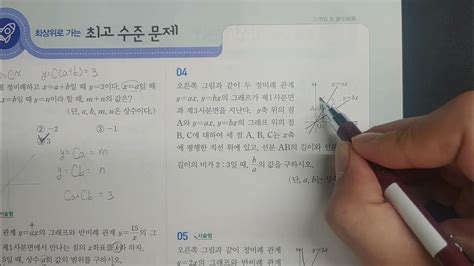 최상위로 가는 최고 수준 문제
y=C(a+b)=3
정비례하고 x=a+b일 때 y=3이다. x=a일 때
x=b일 때 y=n이라 할 때, m+n의 값은?
(단, a, b, m, n은 상수이다.)
② -2
③ -1
⑤ 3
y=Ca=m
y=Cb=n
Ca+Cb=3
계 y=ax의 그래프와 반비례 관계 y=15/x의 그
제1사분면에서 만나는 점의 x좌표를
일 때, 상수 a의 값의 범위를 구하시오.
04
오른쪽 그림과 같이 두 정비례 관계
y=ax, y=bx의 그래프가 제1사분면
과 제3사분면을 지난다. y축 위의 점
A와 y=ax, y=bx의 그래프 위의 점
B, C에 대하여 세 점 A, B, C는 x축
에 평행한 직선 위에 있고, 선분 AB의 길이와 선분
길이의 비가 2:3일 때, b/a의 값을 구하시오.
(단, a, b는 상수
y=ax
y=bx
A
05 서술형
오른쪽 그림과 같이 정비례 관계
y=2x의 그래프와 반비례 관계